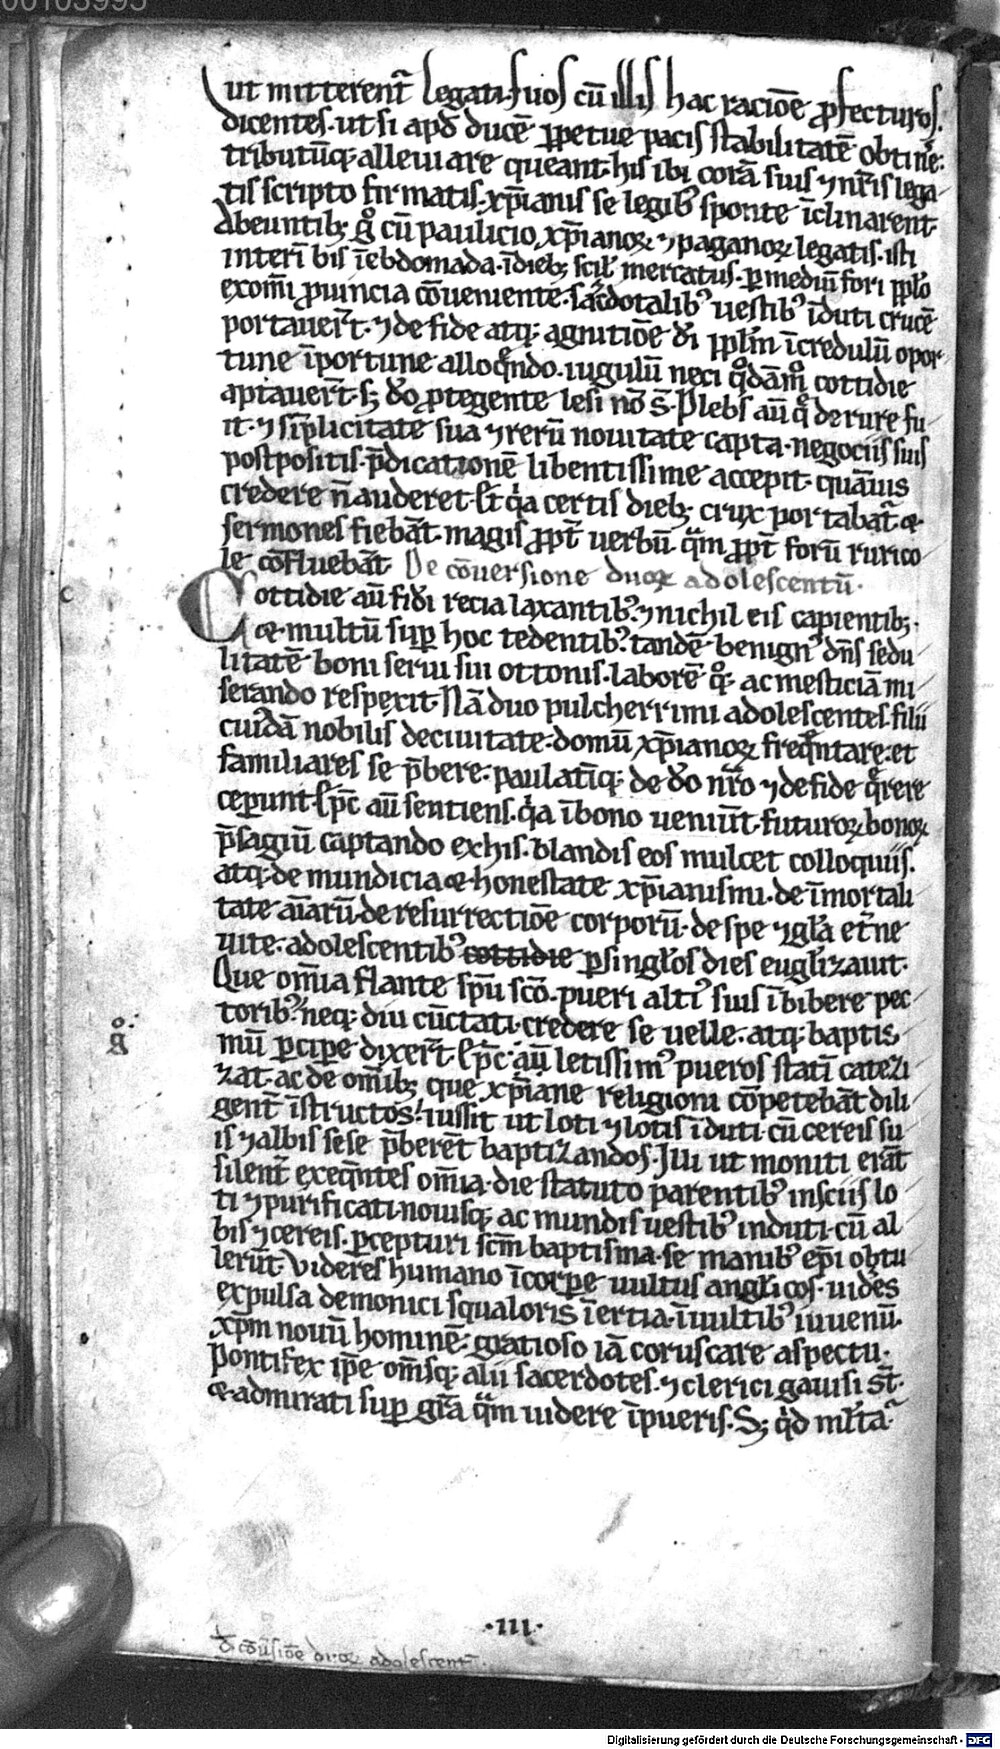 00103995
ut mitterent᷑ legatos suos cū illis hac racıōe ꝓfecturos.
dicentes. ut si apd̄ ducē ꝑpetue pacis stabilitatē obtinꝰe:
tributūq; alleuiare queant. his ibi corā suis ⁊ nr̄is lega-
tis scripto firmatis. xp̄ianis se legibꝰ sponte īclinarent.
Abeuntib; gͦ cū paulicio xp̄ianoꝝ ⁊ paganoꝝ legatis. isti
interī bis ī ebdomada. ī dieb; scil; mercatus. ꝑ mediū fori ppl̄o
ex om̄i ꝓuincia cōueniente. sac̄dotalibꝰ uestibꝰ īduti crucē
portauer̄t. ⁊ de fide atq; agnitiōe dī ppl̄m īcredulū opor-
tune īportune alloqͤndo. iugulū neci qͦdāmͦ cottidie
aptauer̄t. s; dō ꝓtegente lesi nō s̄. Plebs aū qͤ de rure fu-
it. ⁊ sīplicitate sua ⁊ rerū nouitate capta. negociis suis
postpositis. p̄dicationē libentissime accepit. quāuis
credere n̄ auderet. Et qͥa certis dieb; crux portabat᷑ &
sermones fiebāt. magis ꝓpt̄ uerbū qͣm ꝓpt̄ forū rurico-
le cōfluebāt. De cōuersione duoꝝ adolescentū.
Cottidie aū fidī recia laxantibꝰ. ⁊ nichil eis capientib;.
& multū suꝑ hoc tedentibꝰ. tandē benignꝰ dn̄s sedu-
litatē boni serui sui ottonis. laborē qͦ; ac mesticiā mi-
serando respexit. Nā duo pulcherrimi adolescentes. filii
cuidā nobilis de ciuitate. domū xp̄ianoꝝ freqͤntare: et
familiares se p̄bere. paulatīq; de dō nr̄o ⁊ de fide qͤrere
ceperunt. Ep̄c aū sentiens. qͥa ī bono ueniūt. futuroꝝ bonoꝝ
p̄sagiū captando ex his. blandis eos mulcet colloquiis.
atq; de mundicia & honestate xp̄ianismi. de īmortali-
tate aīarū. de resurrectiōe corporū. de spe ⁊ gl̄a et̄ne
uite. adolescentibꝰ cottidie ꝑ singl̄os dies eugl̄izauit.
Que om̄ia flante sp̄u sc̄o. pueri altiꝰ suis ībibere pec-
toribꝰ. neq; diu cūctati. credere se uelle. atq; baptis-
mū ꝑcipe dixer̄t. Ep̄c aū letissimꝰ pueros statī catezi-
zat. ac de om̄ib; que xp̄iane religioni cōpetebāt dili-
gent̄ īstructos. iussit ut loti ⁊ lotis īduti. cū cereis su-
is ⁊ albis sese p̄berēt baptizandos. Illi ut moniti erāt
silent̄ exeqͤntes om̄ia. die statuto parentibꝰ insciis lo-
ti ⁊ purificati. nouisq; ac mundis uestibꝰ induti. cū al-
bis ⁊ cereis. ꝑcepturi sc̄m baptisma. se manibꝰ ep̄i obtu-
lerūt. Videres humano ī corpe uultus angl̄icos. uidēs
expulsa demonici squaloris īertia. ī uultibꝰ iuuenū.
xp̄m nouū hominē. gratioso iā coruscare aspectu.
Pontifex ip̄e om̄sq; alii sacerdotes. ⁊ clerici gauisi st̄.
& admirati suꝑ gr̄a qͣm uidere ī pueris. S; qͥd ml̄ta.
c
gͦ
.III.
De cōūsiōe duoꝝ adolescent̄.
Digitalisierung gefördert durch die Deutsche Forschungsgemeinschaft - DFG